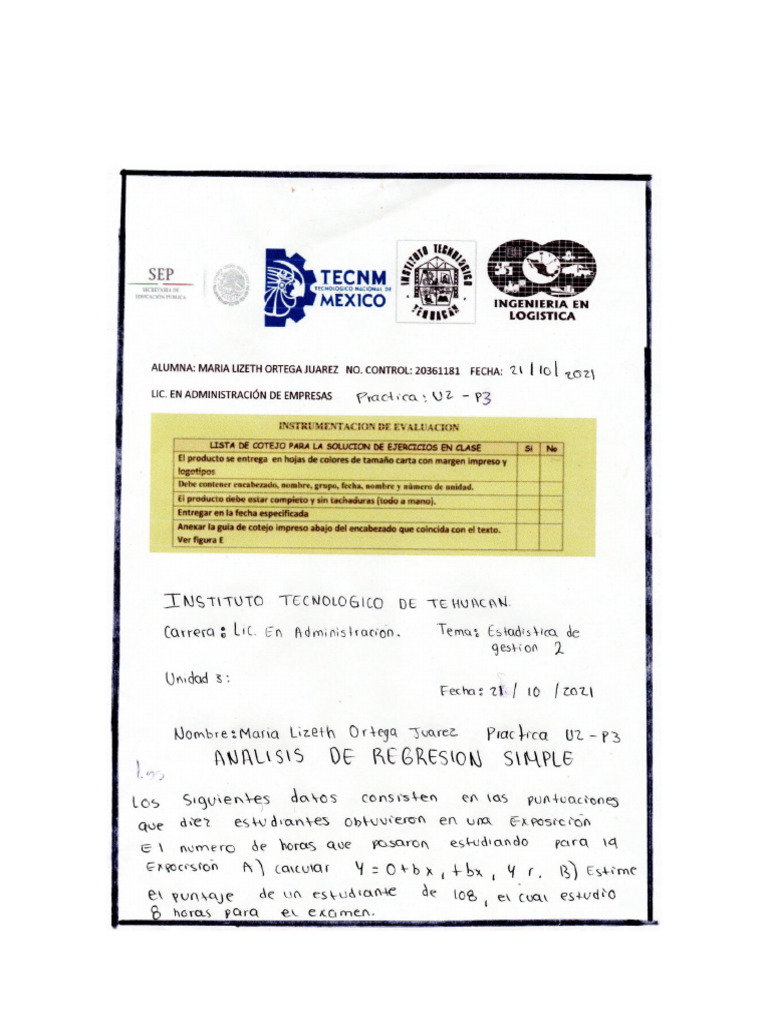 SEP
SECRETARÍA DE
EDUCACIÓN PÚBLICA
TECNM
TECNOLÓGICO NACIONAL DE
MÉXICO
INSTITUTO TECNOLOGICO
TEHUACAN
INGENIERIA EN
LOGISTICA
ALUMNA: MARIA LIZETH ORTEGA JUAREZ NO. CONTROL: 20361181 FECHA: 21/10/2021
LIC. EN ADMINISTRACIÓN DE EMPRESAS Practica: U2 - P3
INSTRUMENTACION DE EVALUACION
LISTA DE COTEJO PARA LA SOLUCION DE EJERCICIOS EN CLASE Si No
El producto se entrega en hojas de colores de tamaño carta con margen impreso y
logotipos
Debe contener encabezado, nombre, grupo, fecha, nombre y número de unidad.
El producto debe estar completo y sin tachaduras (todo a mano).
Entregar en la fecha especificada
Anexar la guía de cotejo impreso abajo del encabezado que coincida con el texto.
Ver figura E
INSTITUTO TECNOLOGICO DE TEHUACAN.
Carrera: Lic. En Administracion. Tema: Estadistica de
gestion 2
Unidad 3:
Fecha: 21/10/2021
Nombre: Maria Lizeth Ortega Juarez Practica U2-P3
ANALISIS DE REGRESION SIMPLE
Los
Los Siguientes datos consisten en las puntuaciones
que diez estudiantes obtuvieron en una Exposición
El numero de horas que pasaron estudiando para la
Expocisión A) calcular Y=0+bx, +bx, Y r. B) Estime
el puntaje de un estudiante de 108, el cual estudio
8 horas para el examen.